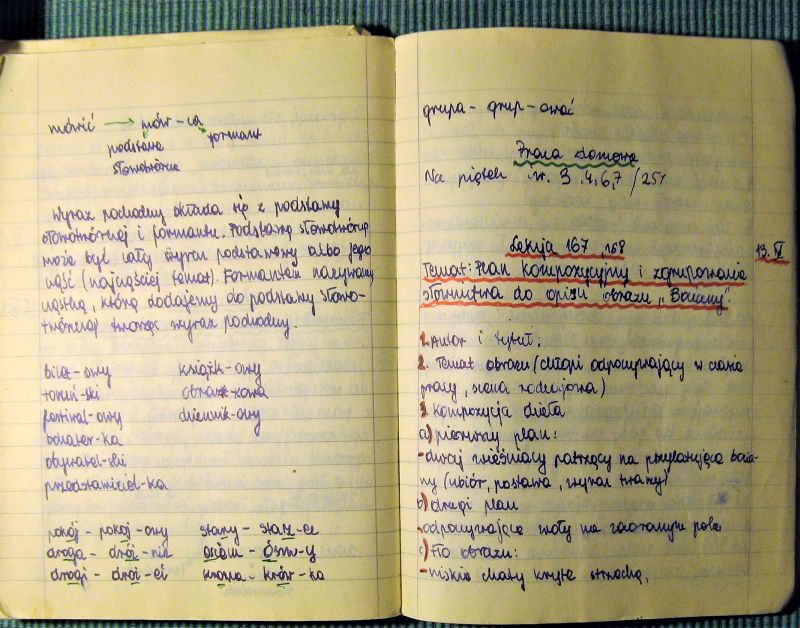 mówić → mów - ca
podstawa formant
słowotwórcza
Wyraz pochodny składa się z podstawy
słowotwórczej i formantu. Podstawą słowotwórczą
może być cały wyraz podstawowy albo jego
część (najczęściej temat). Formantem nazywamy
cząstkę, którą dodajemy do podstawy słowo-
twórczej tworząc wyraz pochodny.
bilet-owy książk-owy
toruń-ski obraz-kowa
festiwal-owy dziennik-owy
bohater-ka
obywatel-ski
przedstawiciel-ka
pokój - pokoj-owy stary - starz-ec
droga - dróż-nik osiem - ósm-y
drogi - droż-ej krowa - krów-ka
grupa - grup-ować
Praca domowa
Na piątek ćw. 3,4,6,7/251
Lekcja 167 168 13.V
Temat: Plan kompozycyjny i zgrupowanie
słownictwa do opisu obrazu „Bociany".
1. Autor i tytuł:
2. Temat obrazu (chłopi odpoczywający w czasie
pracy, scena rodzajowa)
3. Kompozycja dzieła
a) pierwszy plan:
- dwaj wieśniacy patrzący na przylatujące bocia-
ny (ubiór, postawa, wyraz twarzy)
b) drugi plan
- odpoczywające woły na zaoranym polu
c) tło obrazu:
- niskie chaty kryte strzechą,